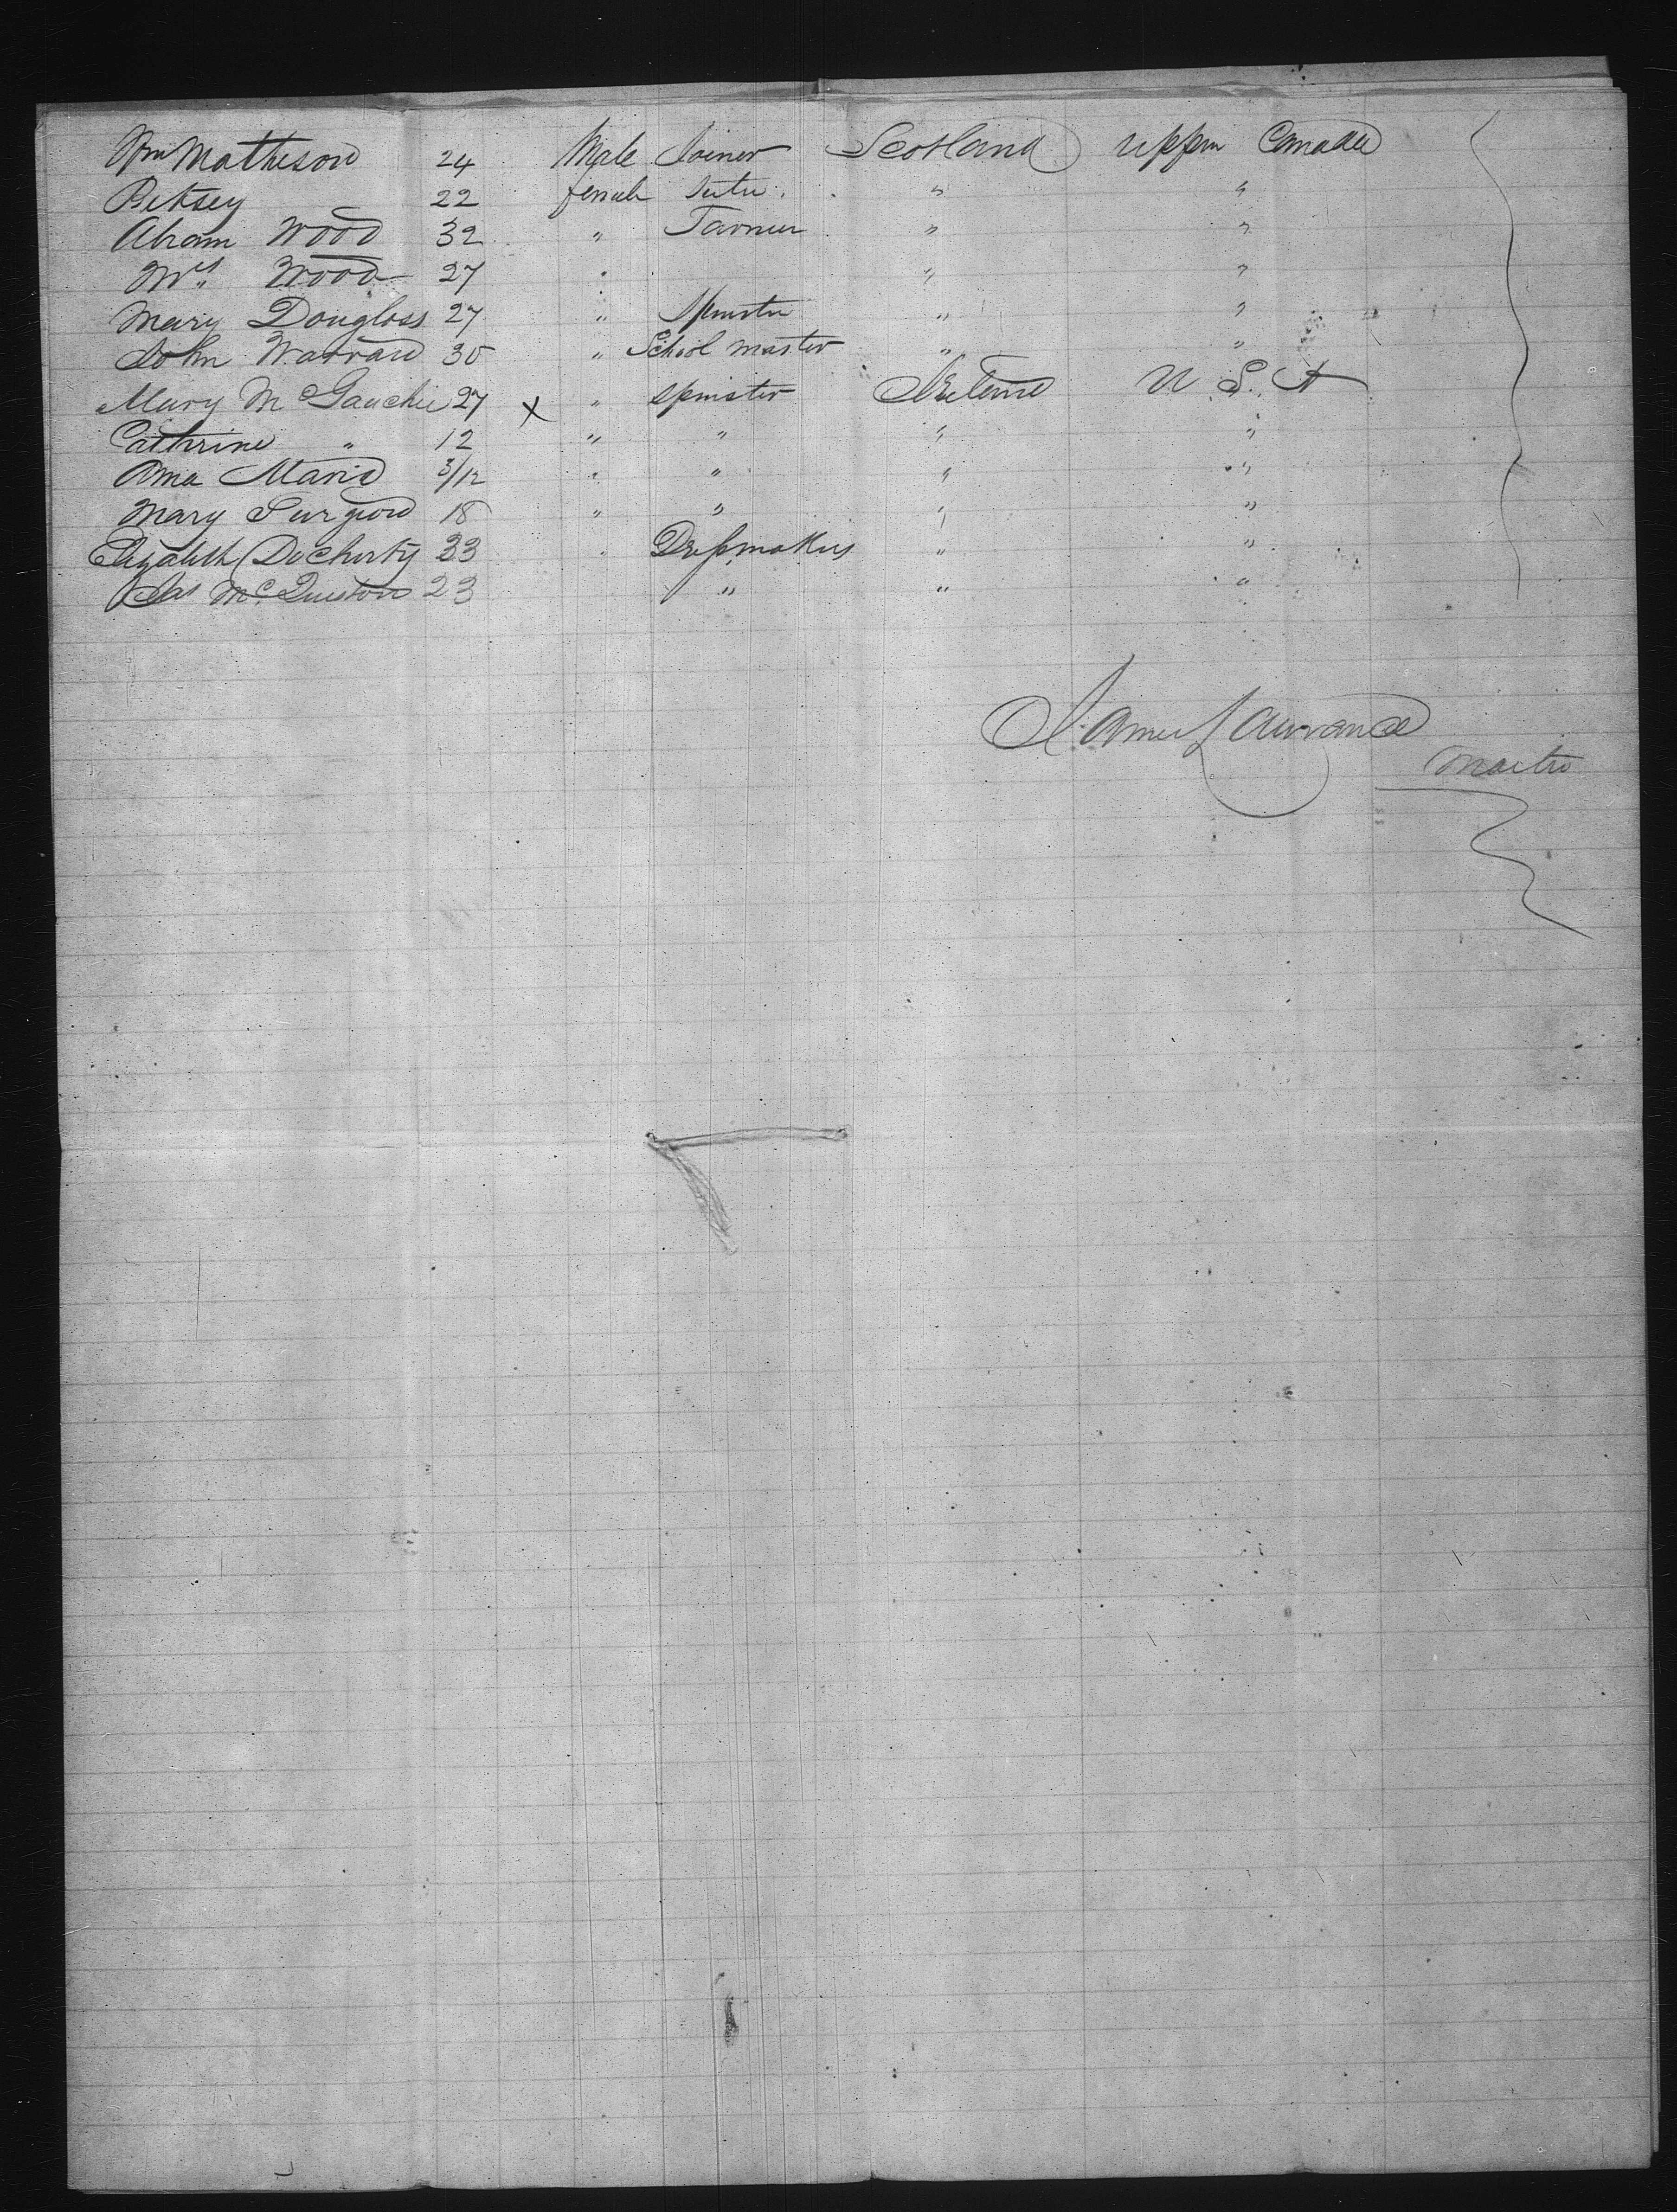 Wm Mathison 24 Male Joiner Scotland upper Canada
Betsey 22 female " "
Abram Wood 32 " Farmer " "
Mrs. Wood 27 " " "
Mary Douglass 27 " Spinster " "
John 30 " School master " "
Mary Mc Gauchie 27 X " spinster Ireland U. S. A
Cathrine " 12 " " " "
Ama Maria 3/12 " " " "
Mary 18 " " " "
Elizabeth Docherty 23 " Dressmakers " "
Jas McQueston 23 " " "
James Laurance
Master